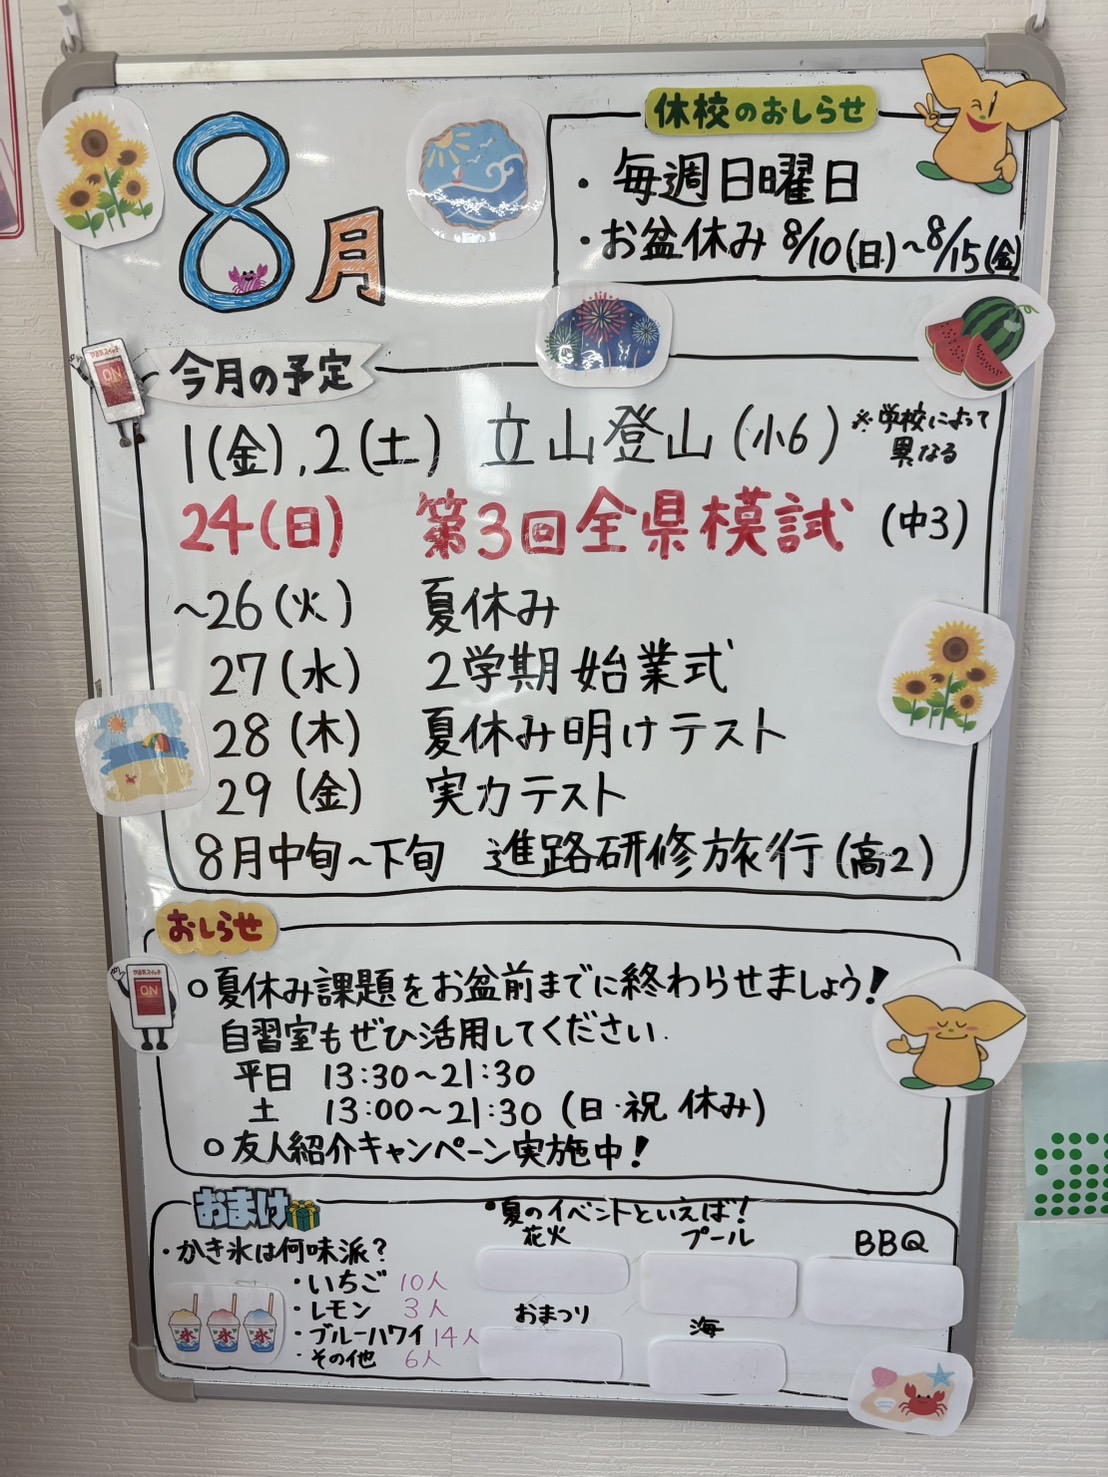 8月
休校のおしらせ
・毎週日曜日
・お盆休み 8/10(日)~8/15(金)
今月の予定
1(金),2(土) 立山登山(小6) ※学校によって
異なる
24(日) 第3回全県模試 (中3)
~26(火) 夏休み
27(水) 2学期始業式
28(木) 夏休み明けテスト
29(金) 実力テスト
8月中旬~下旬 進路研修旅行(高2)
おしらせ
○夏休み課題をお盆前までに終わらせましょう!
自習室もぜひ活用してください.
平日 13:30~21:30
土 13:00~21:30 (日・祝 休み)
○友人紹介キャンペーン実施中!
おまけ
・かき氷は何味派?
・いちご 10人
・レモン 3人
・ブルーハワイ 14人
・その他 6人
氷 氷 氷
・夏のイベントといえば!
花火 プール BBQ
おまつり 海
ON
ON